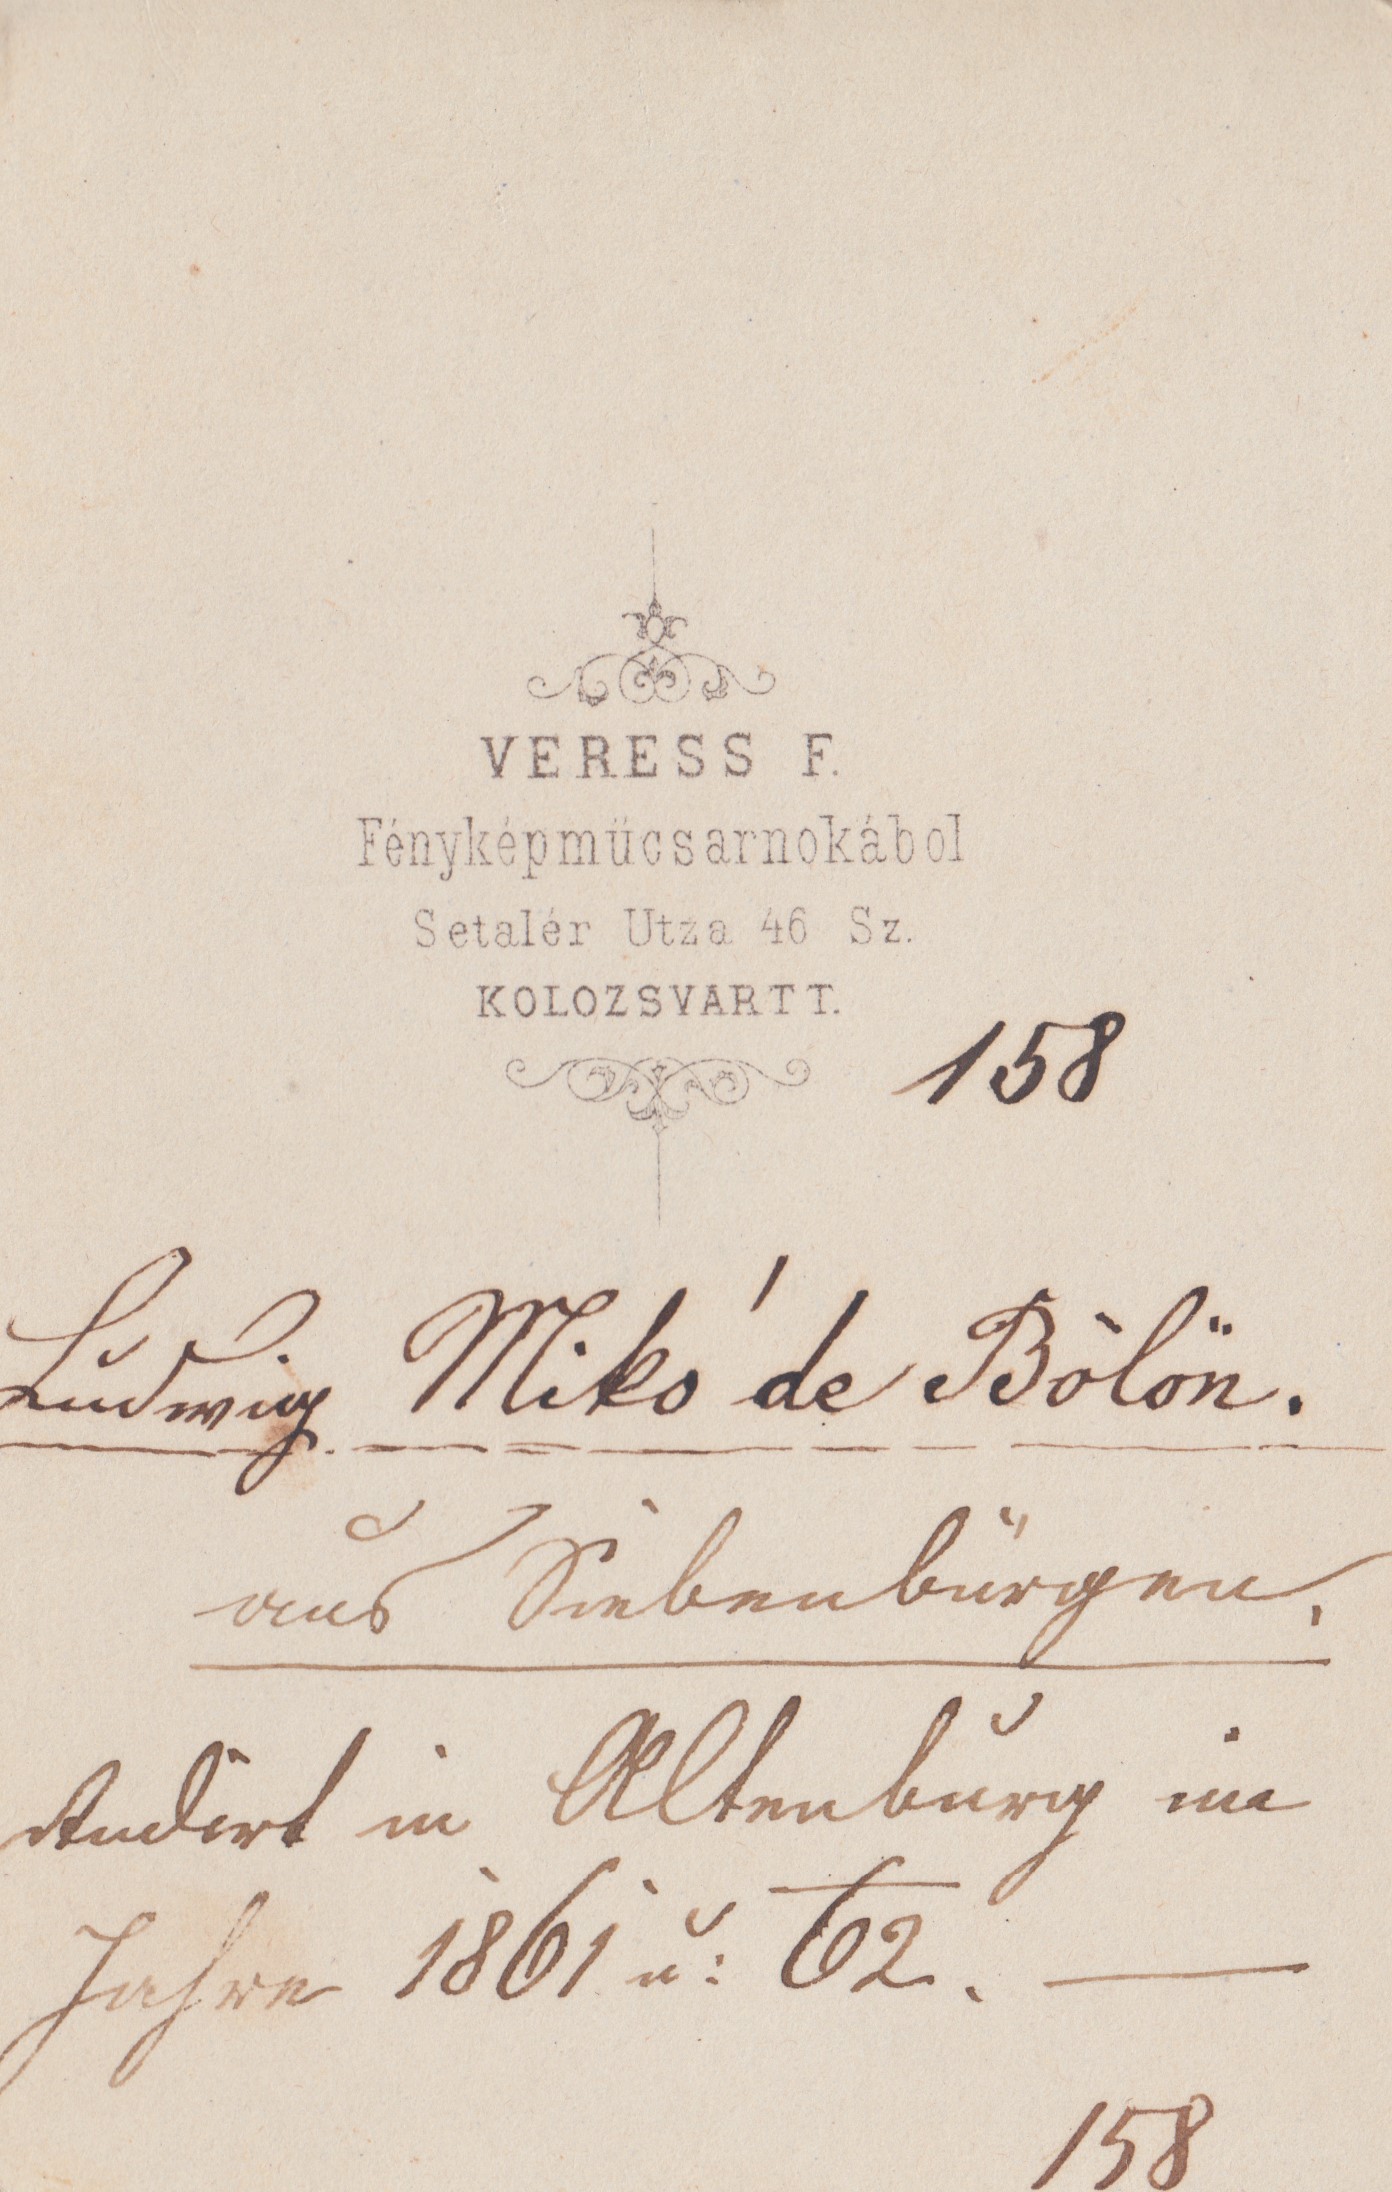 VERESS F.
Fényképmücsarnokábol
Setalér Utza 46 Sz.
KOLOZSVARTT.
158
Ludwig Mikó de Bölön.
aus Siebenbürgen.
studirt in Altenburg im
Jahre 1861 u: 62. —
158